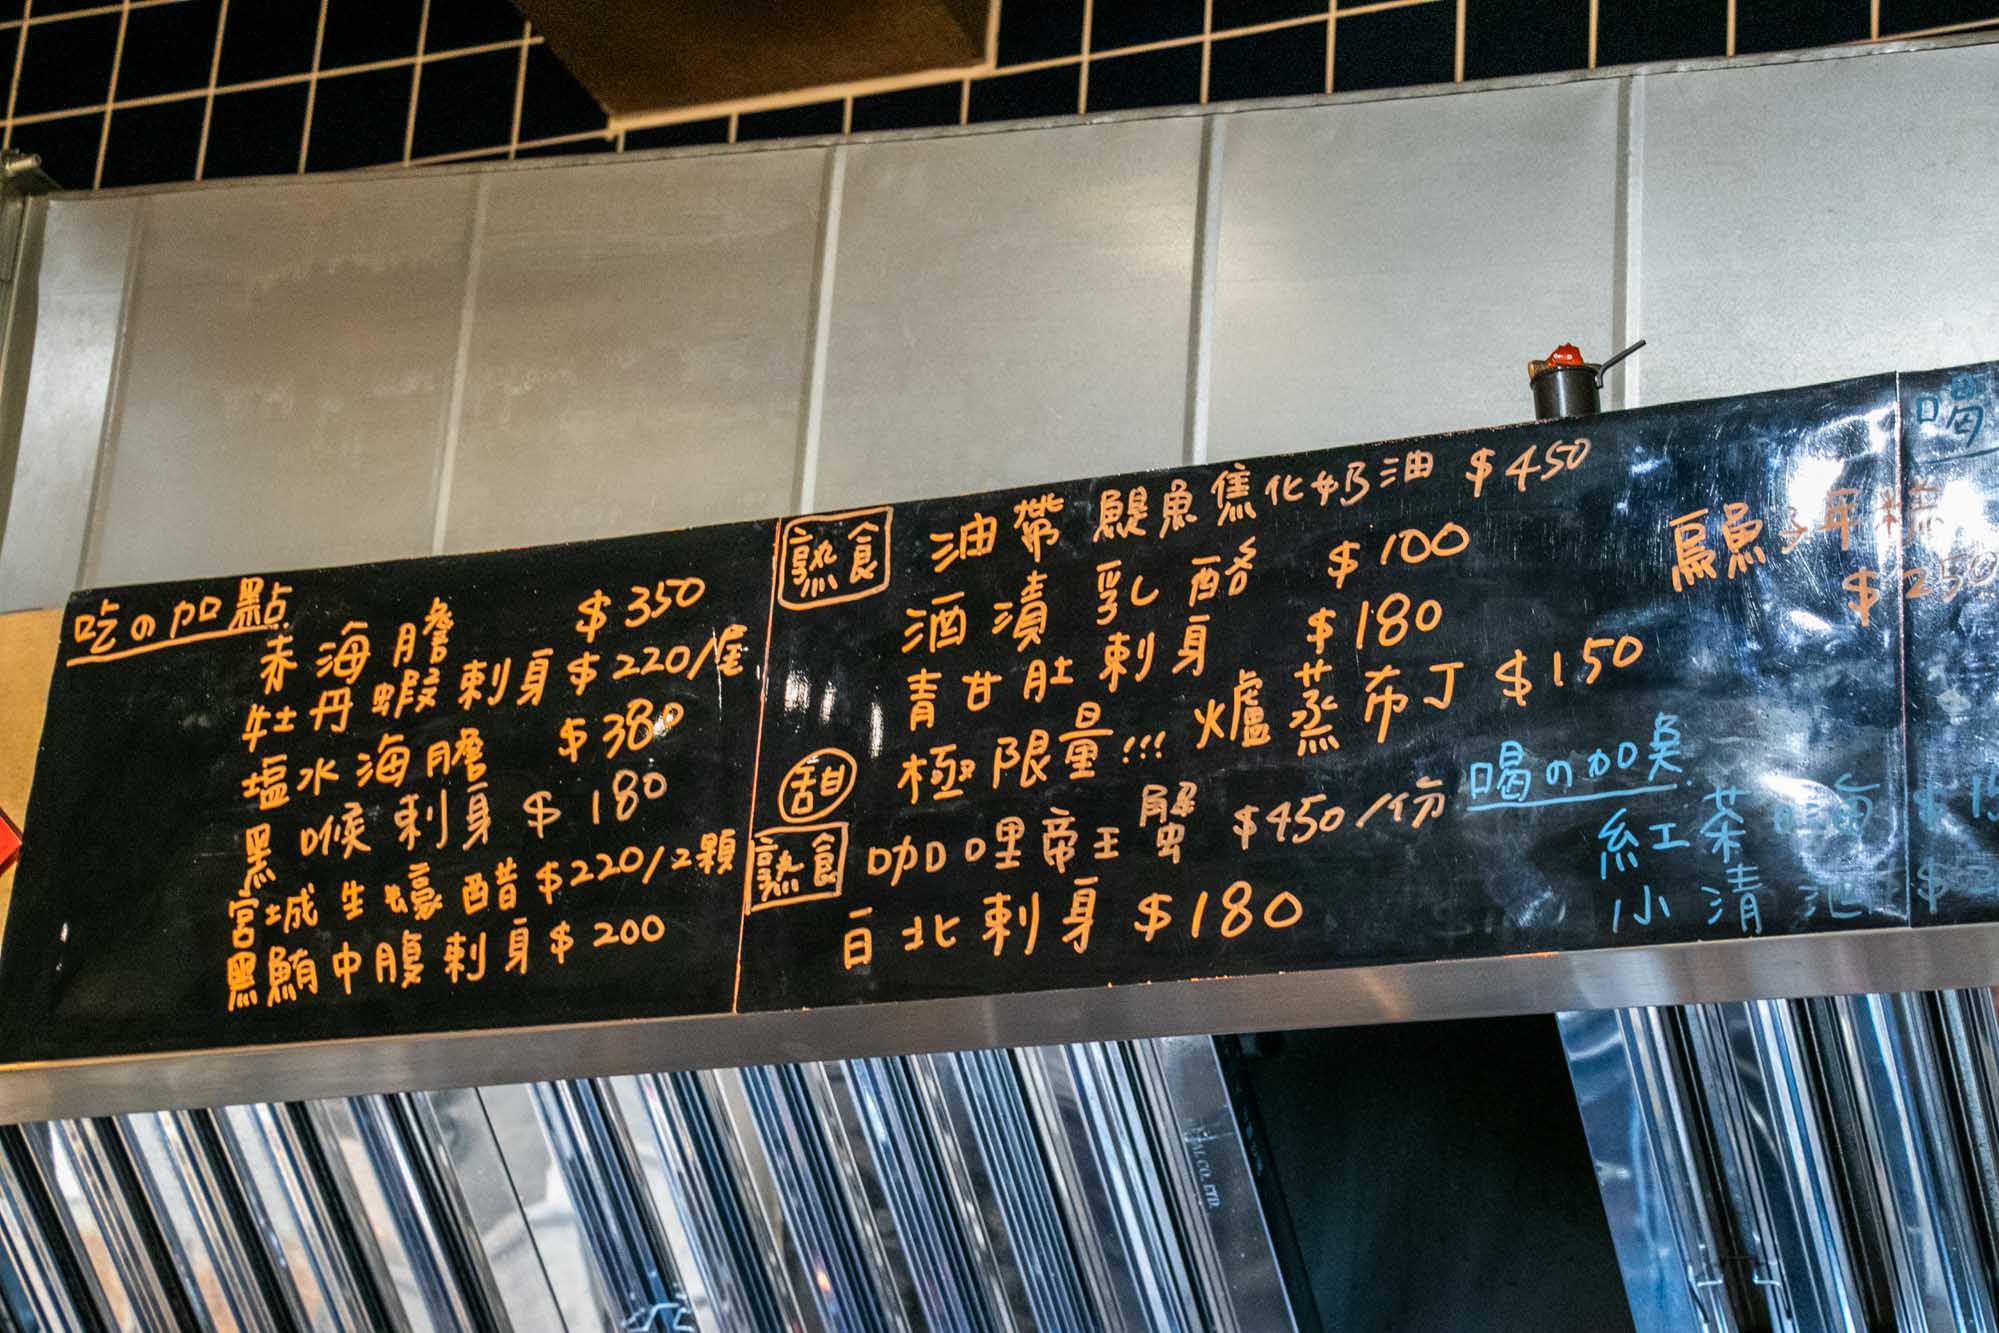 吃の加點
赤海膽 $350
牡丹蝦刺身 $220/尾
塩水海膽 $380
黑喉刺身 $180
宮城生蠔醋 $220/2顆
黑鮪中腹刺身 $200
熟食 油帶鰻魚焦化奶油 $450
酒漬乳酪 $100
青甘肚刺身 $180
甜 極限量!!! 爐蒸布丁 $150
熟食 咖哩帝王蟹 $450/份
百北刺身 $180
烏魚子年糕
$250
喝の加點
紅茶
小清酒
喝